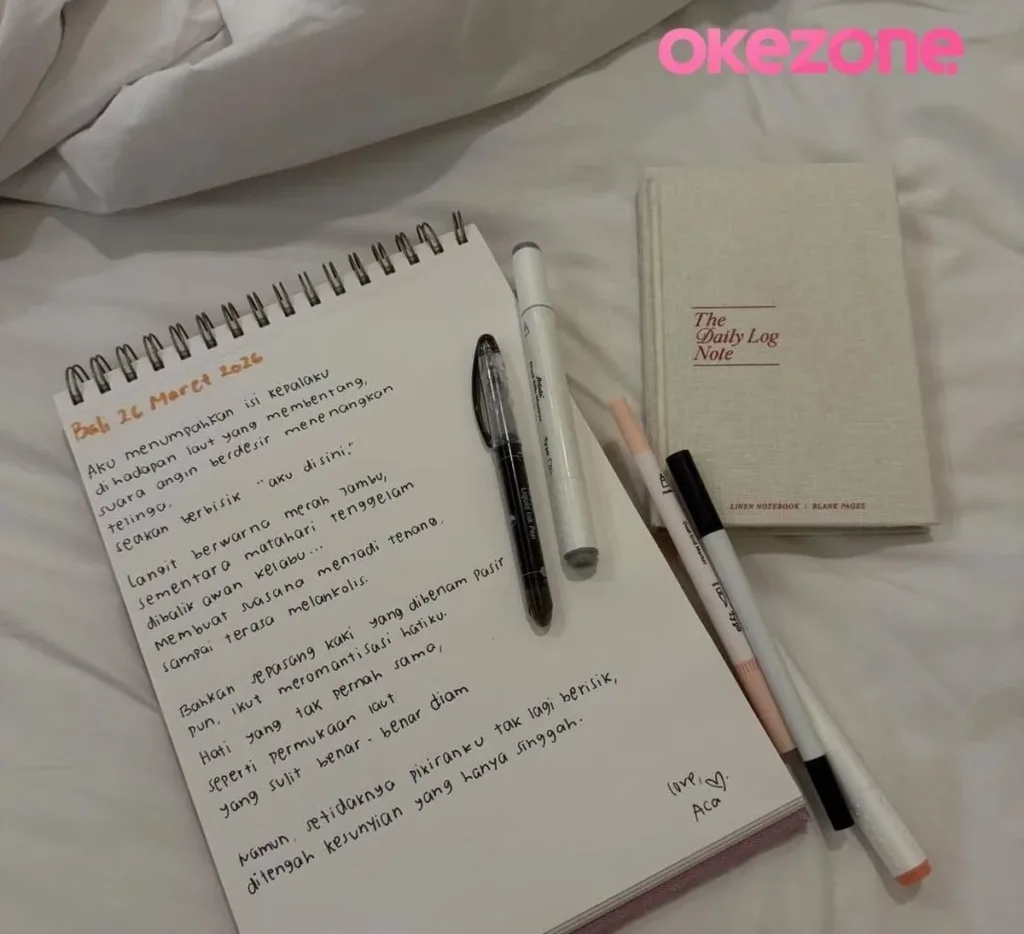 OKEZONE
Bali 26 Maret 2026
Aku menumpahkan isi kepalaku
dihadapan laut yang membentang,
suara angin berdesir menenangkan
telinga.
seakan berbisik "aku disini."
Langit berwarna merah jambu,
sementara matahari tenggelam
dibalik awan kelabu...
membuat suasana menjadi tenang,
sampai terasa melankolis.
Bahkan sepasang kaki yang dibenam pasir
pun, ikut meromantisasi hatiku.
Hati yang tak pernah sama,
seperti permukaan laut
yang sulit benar - benar diam
Namun, setidaknya pikiranku tak lagi berisik,
ditengah kesunyian yang hanya singgah.
love,
Aca
Liquid Ink Pen
Dual End Marker
The
Daily Log
Note
LINEN NOTEBOOK | BLANK PAGES